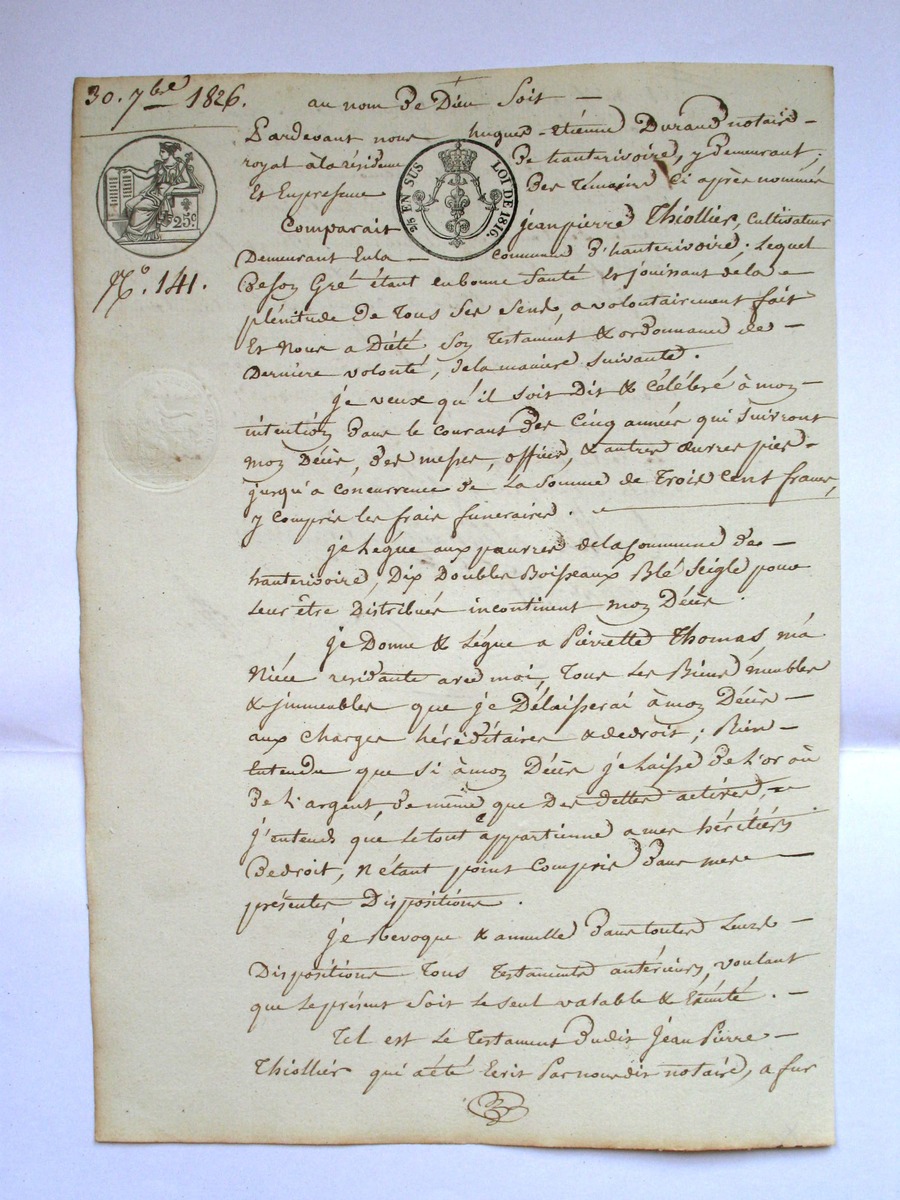 30. 7bre 1826.
au nom de Dieu Soit —
Pardevant nous hugues-étienne Durand notaire —
royal à la résidence de hauterivoire, y demeurant ;
Et En présence des Témoins ci après nommés
25c.
25 EN SUS
LOI DE 1816.
Comparait jean pierre Thiollier, Cultivateur
Demeurant En la — commune d'hauterivoire. Lequel
N.° 141.
de son Gré étant en bonne Santé Et jouissant de la
plénitude de Tous Ses Sens, a volontairement fait
Et Nous a Dicté Son Testament & ordonnance de —
Derniere volonté, de la maniere suivante.
je veux qu'il soit Dit & Célébré à mon —
intention dans le courant des Cinq années qui suivront
mon Décès, des messes, offices, & autres œuvres pies —
jusqu'a concurrence de La Somme de Trois Cent francs,
y compris les frais funeraires. —
je Légue aux pauvres de la Commune de —
hauterivoire, Dix Doubles Boisseaux Blé Seigle pour
Leur être Distribués incontinent mon Décès.
je Donne & Légue a Pierrette Thomas ma
Niéce residante avec moi, Tous Les Biens meubles
& immeubles que je Délaisserai à mon Décès —
aux charges héréditaires & de droit ; Bien —
Entendu que si à mon Décès je Laisse de L'or ou
de L'argent, de même que Des dettes actives, —
j'entends que Le tout appartienne a mes héritiers
de droit, N'étant point Compris dans mes —
présentes Dispositions.
je Revoque & annulle dans toutes Leurs —
Dispositions Tous Testaments antérieurs, voulant
que Le présent Soit Le seul valable & Exécuté. —
Tel est Le Testament dudit Jean Pierre —
Thiollier qui a été Ecrit Par nous dit notaire, a fur